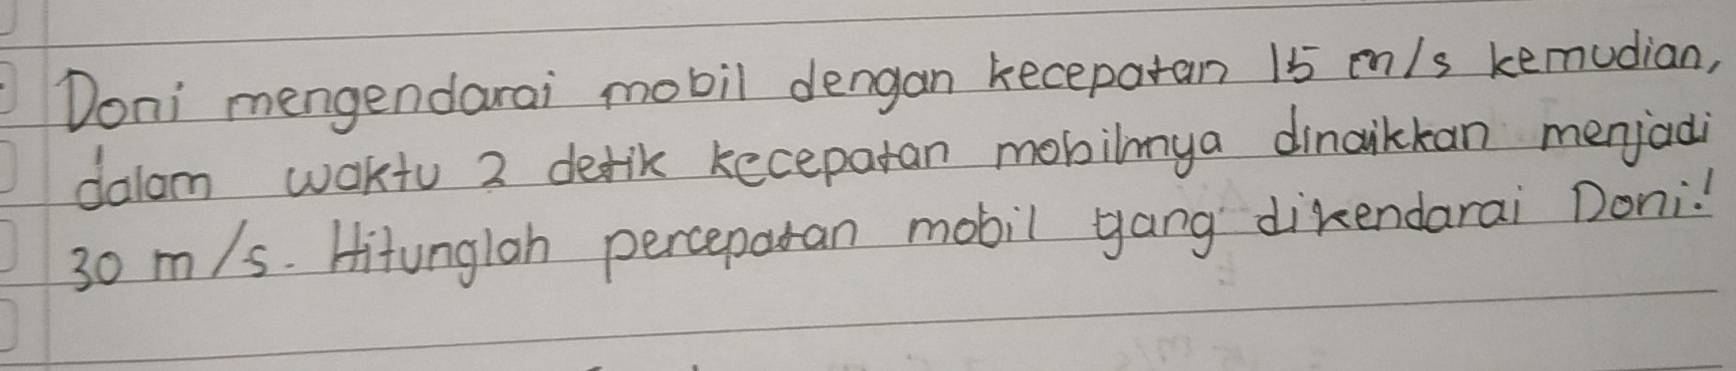 Doni mengendarai mobil dengan kecepatan 15 m/s kemudian,
dalam waktu 2 detik kecepatan mobilnya dinaikkan menjadi
30 m/s. Hitunglah percepatan mobil yang dikendarai Doni!